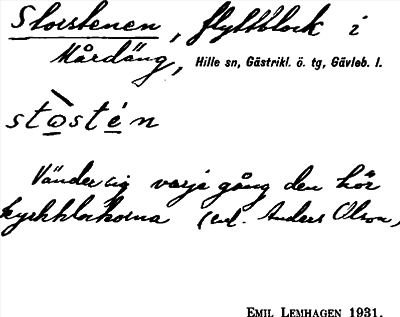 Storstenen, flyttblock i
Mårdäng, Hille sn, Gästrikl. ö. tg, Gävleb. l.
stọ̀stẹ́n
Vänder sig varje gång den hör
kyrkklockorna (enl. Anders Olson)
EMIL LEMHAGEN 1931.